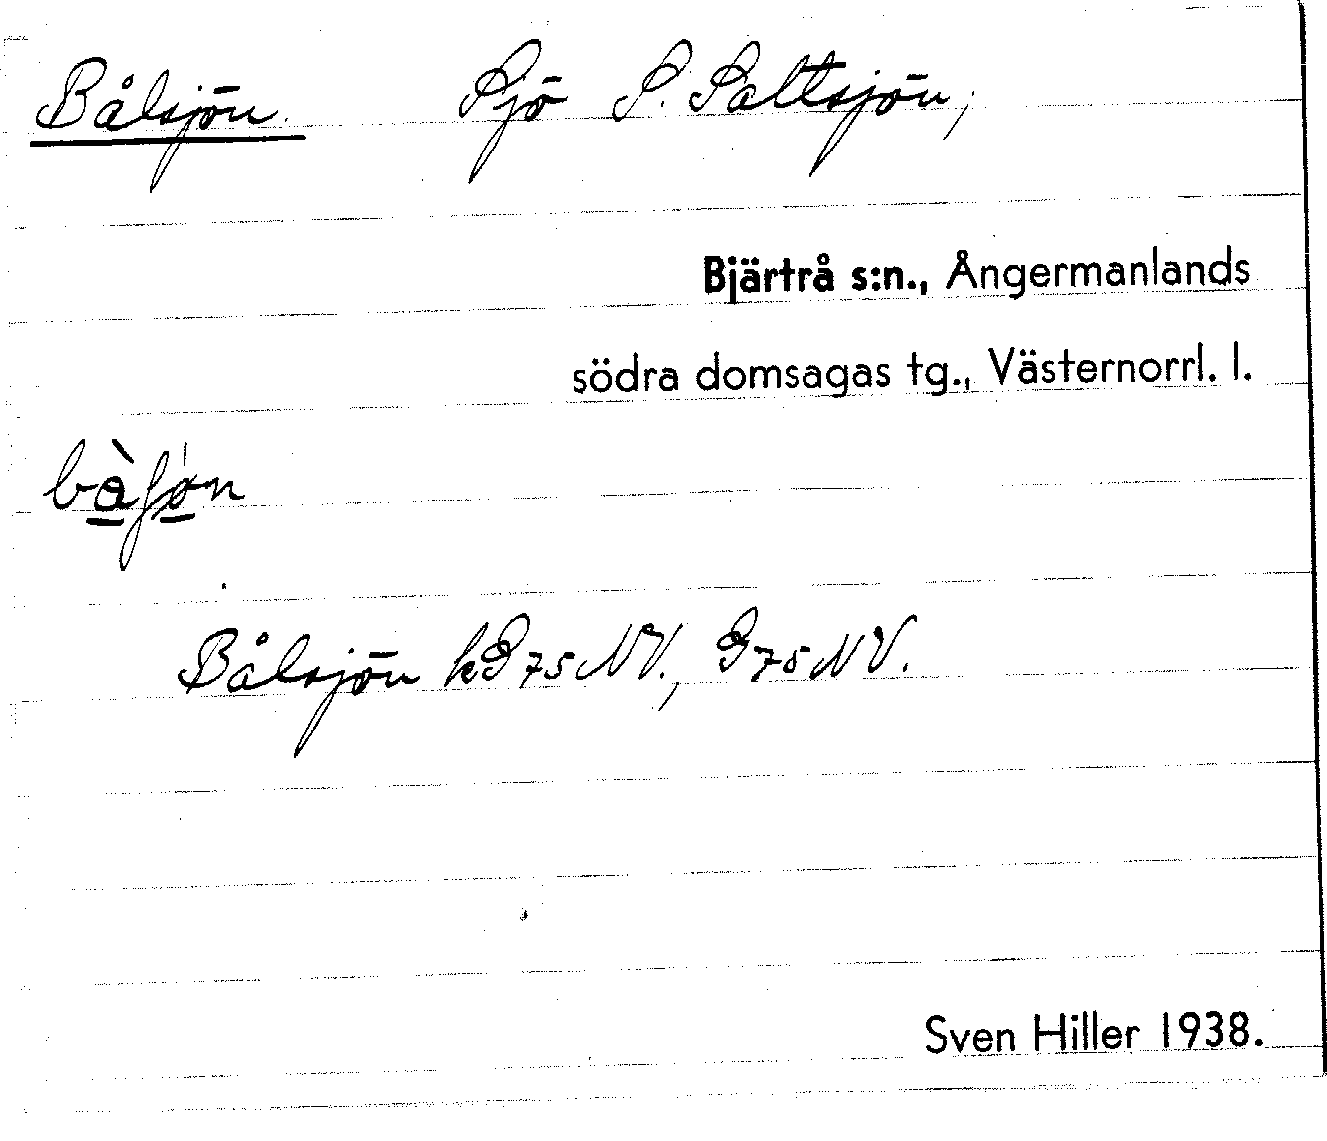 Bålsjön. Sjö S. Saltsjön,
Bjärtrå s:n., Ångermanlands
södra domsagas tg., Västernorrl. l.
Bålsjön kG75NV., G75NV.
Sven Hiller 1938.